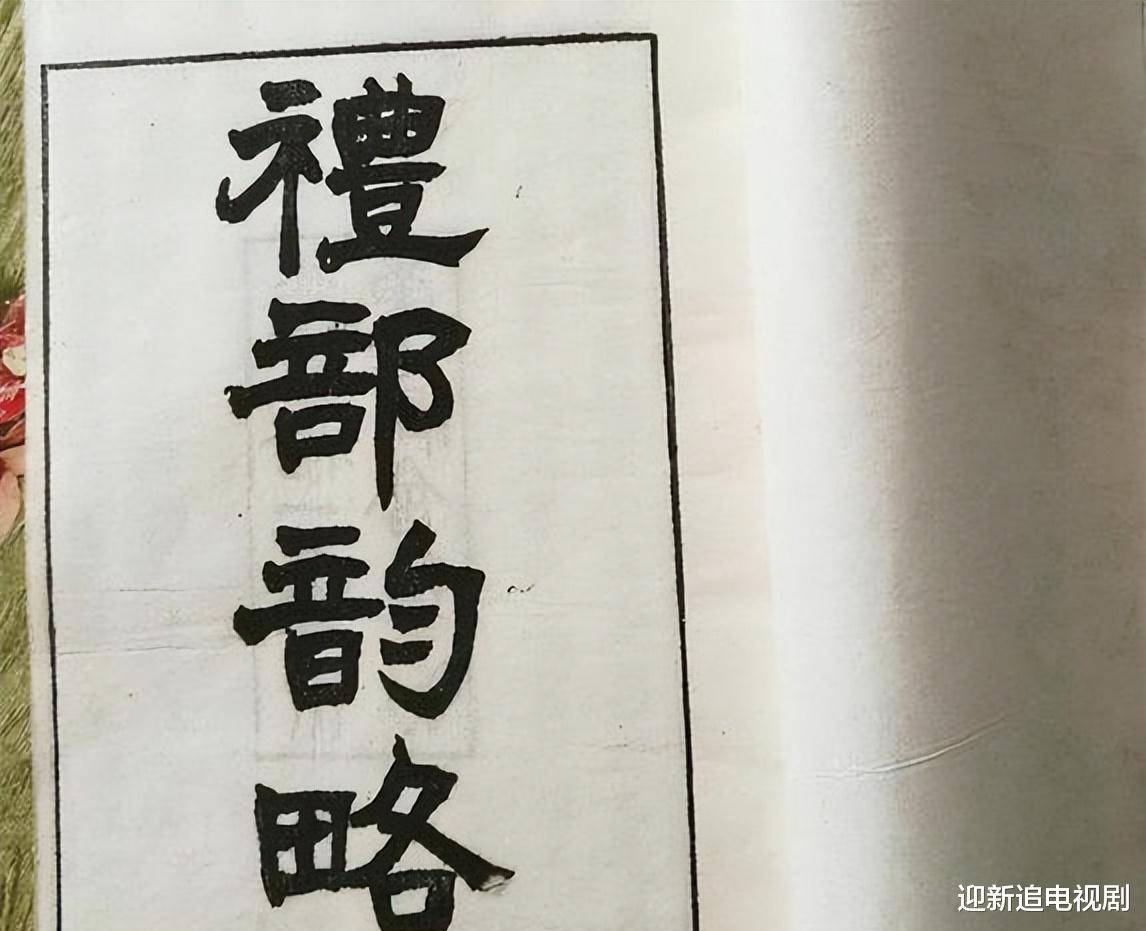 禮部韵略
迎新追电视剧